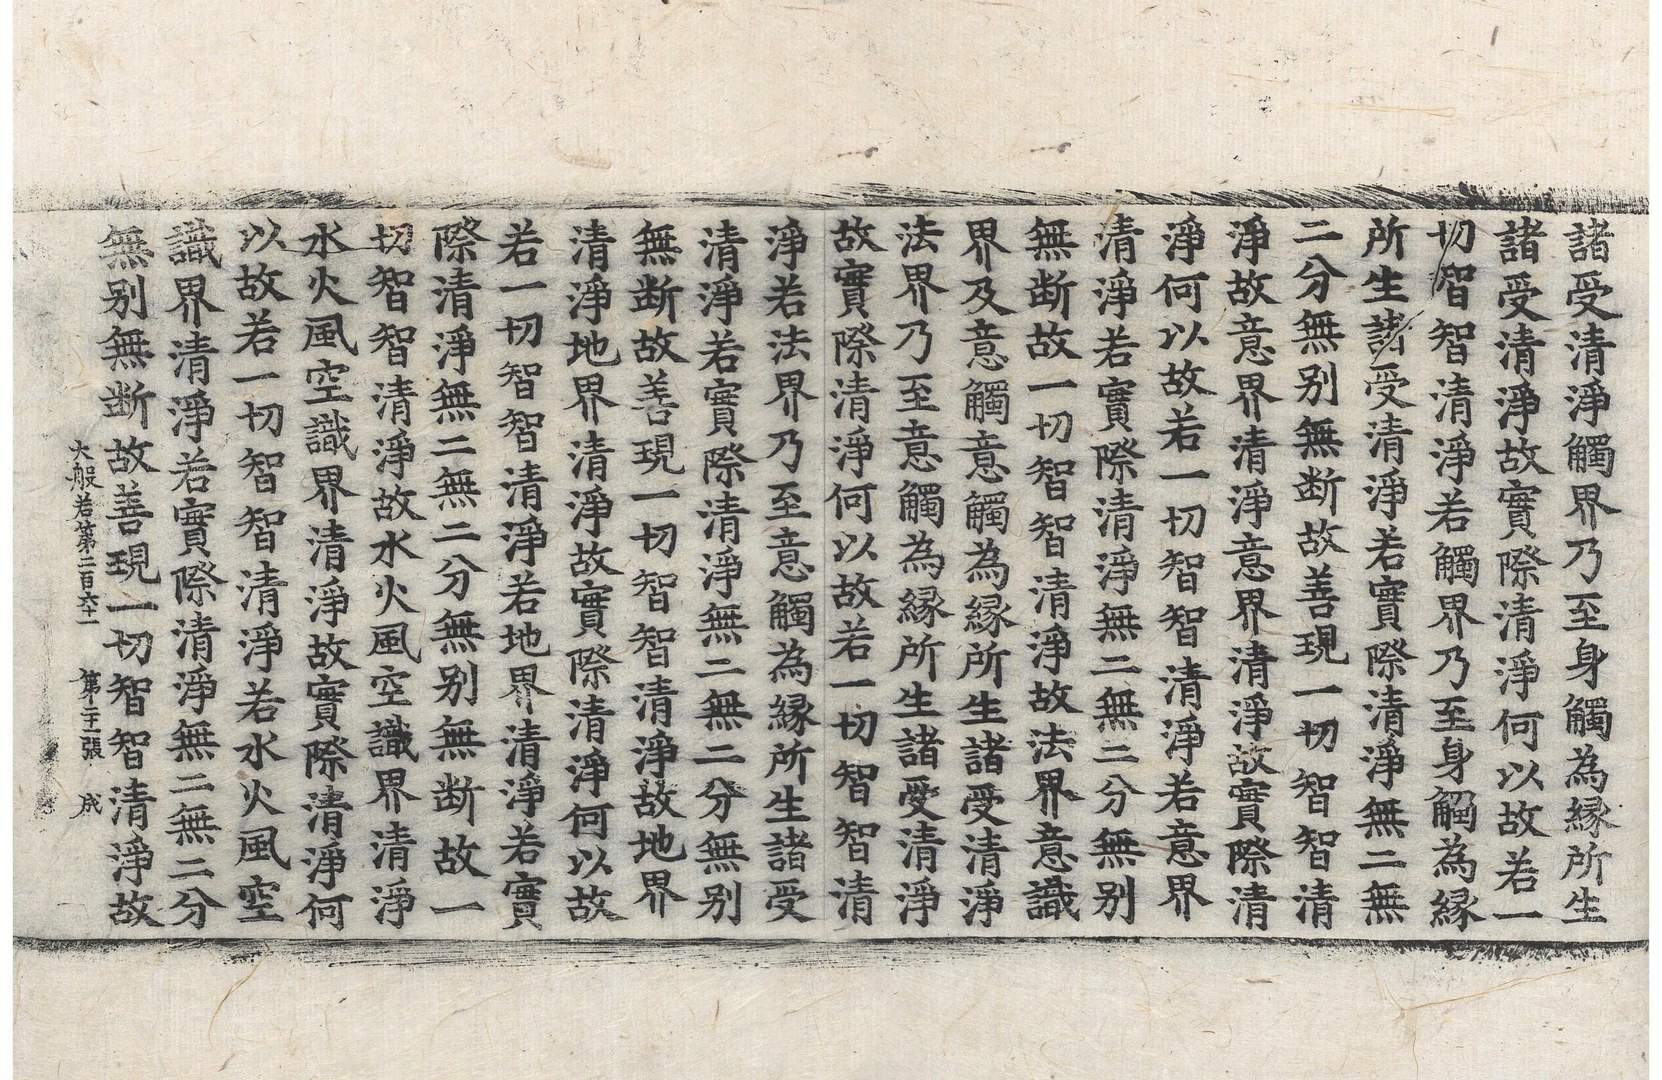 諸受清淨觸界乃至身觸為縁所生
諸受清淨故實際清淨何以故若一
切智智清淨若觸界乃至身觸為縁
所生諸受清淨若實際清淨無二無
二分無别無断故善現一切智智清
淨故意界清淨意界清淨故實際清
淨何以故若一切智智清淨若意界
清淨若實際清淨無二無二分無别
無断故一切智智清淨故法界意識
界及意觸意觸為縁所生諸受清淨
法界乃至意觸為縁所生諸受清淨
故實際清淨何以故若一切智智清
淨若法界乃至意觸為縁所生諸受
清淨若實際清淨無二無二分無别
無断故善現一切智智清淨故地界
清淨地界清淨故實際清淨何以故
若一切智智清淨若地界清淨若實
際清淨無二無二分無别無断故一
切智智清淨故水火風空識界清淨
水火風空識界清淨故實際清淨何
以故若一切智智清淨若水火風空
識界清淨若實際清淨無二無二分
無别無断故善現一切智智清淨故
大般若第二百六十一 第張 成